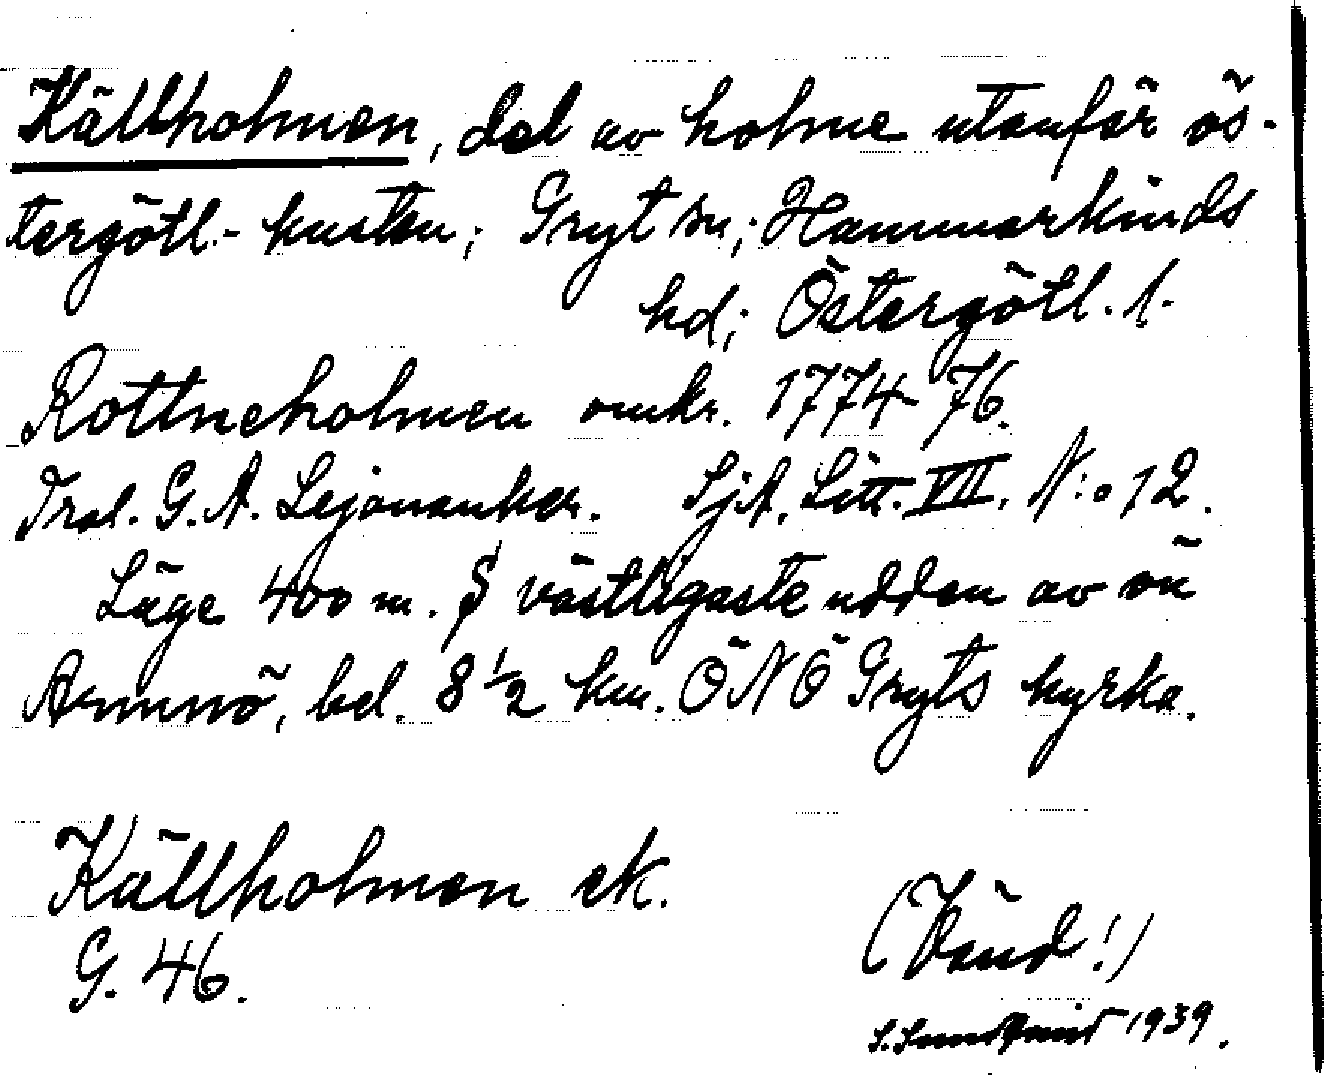 Källholmen, del av holme utanför ös-
tergötl.- kusten; Gryt sn; Hammarkinds
hd; Östergötl. l.
Rottneholmen omkr. 1774-76.
Trol. G. A. Lejonanker. SjA. Litt. VII. N:o 12.
Läge 400 m. S västligaste udden av ön
Armnö, bel. 8 1/2 km. ÖNÖ Gryts kyrka.
Källholmen ek.
G. 46.
(Vänd!)
S. Sundqvist 1939.